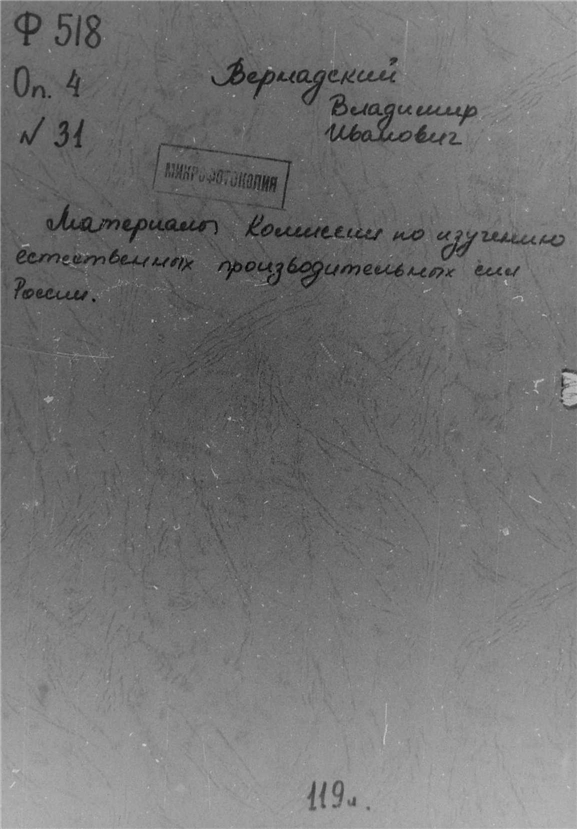 Ф 518
Оп. 4
N 31
Вернадский
Владимир
Иванович
МИКРОФОТОКОПИЯ
Материалы Комиссии по изучению
естественных производительных сил
России.
119л.